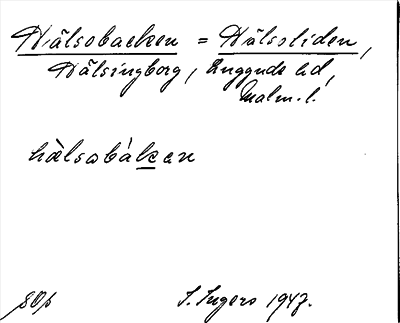 Hälsobacken = Hälsoliden,
Hälsingborg, Luggude hd,
Malm. l.
hälsobákan
S. Ingers 1947.